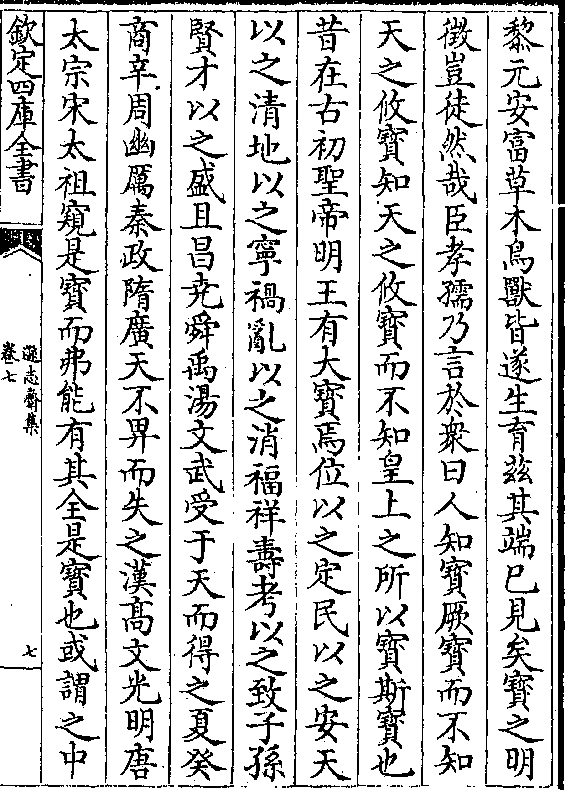 黎元安富草木鳥獸皆遂生育兹其端已見矣寳之明
徵豈徒然哉臣孝孺乃言於衆曰人知寳厥寳而不知
天之攸寳知天之攸寳而不知皇上之所以寳斯寳也
昔在古初聖帝明王有大寳焉位以之定民以之安天
以之清地以之寧禍亂以之消福祥壽考以之致子孫
賢才以之盛且昌堯舜禹湯文武受于天而得之夏癸
商辛周幽厲秦政隋廣天不畀而失之漢髙文光明唐
太宗宋太祖窺是寳而弗能有其全是寳也或謂之中
欽定四庫全書
遜志齋集
卷七
七